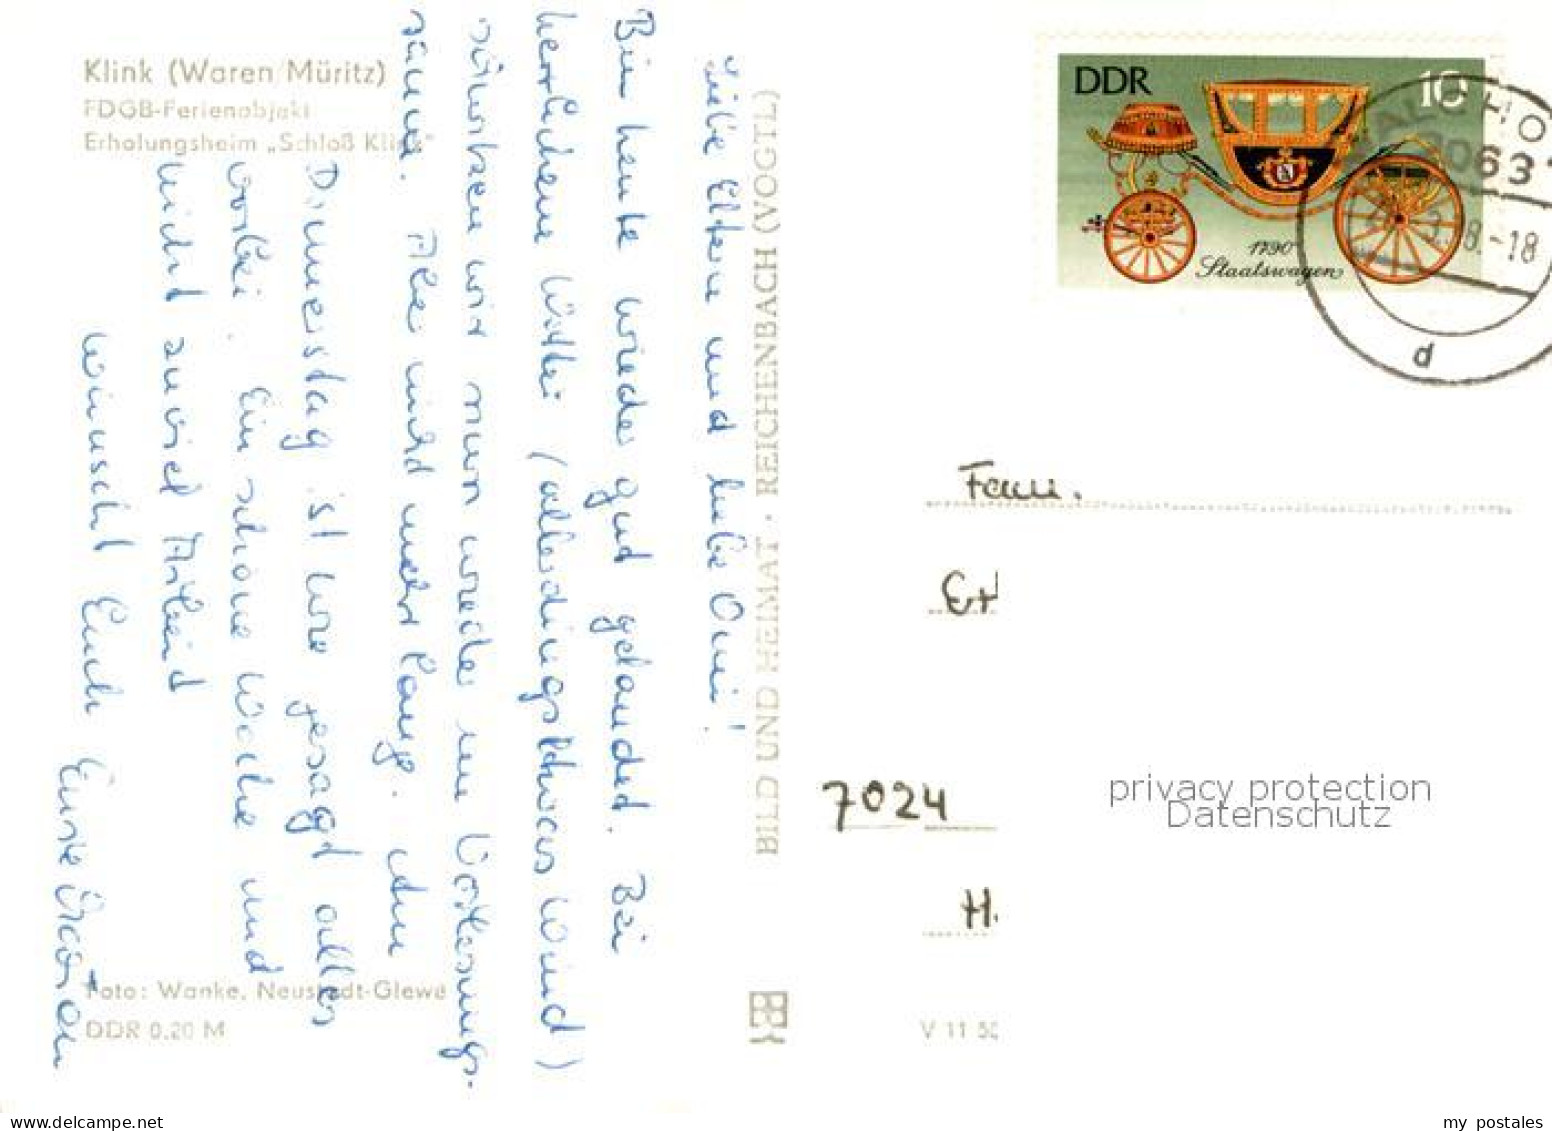 Klink (Waren Müritz)
FDGB-Ferienobjekt
Erholungsheim „Schloß Klink"
Liebe Eltern und liebe Omi!
Bin heute wieder gut gelandet. Bei
herrlichem Wetter (allerdings etwas Wind)
schwitzen wir nun wieder im Vorlesungs-
raum. Aber nicht mehr lange. Am
Donnerstag ist wie gesagt alles
vorbei. Eine schöne Woche und
nicht zuviel Arbeit
wünscht Euch Eure
Foto: Wanke, Neustadt-Glewe
DDR 0,20 M
BILD UND HEIMAT · REICHENBACH (VOGTL)
V 11 50
DDR 10
1790
Staatswagen
MALCHOW
2063
8.-18
d
Fam.
7024
H.
privacy protection
Datenschutz
my postales